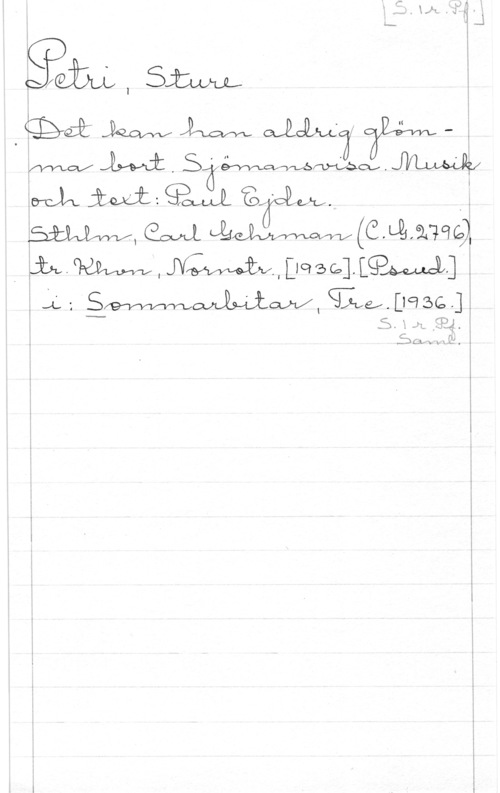 [S. 1 r. Pf.]
Petri, Sture
Det kan han aldrig glöm-
ma bort. Sjömansvisa. Musik
och text: Paul Ejder.
Sthlm, Carl Gehrman (C.G.2796),
tr. Khvn, Nornotr., [1936]. [Pseud.]
i: Sommarbitar, Tre. [1936.]
S. 1 r. Pf.
Saml.